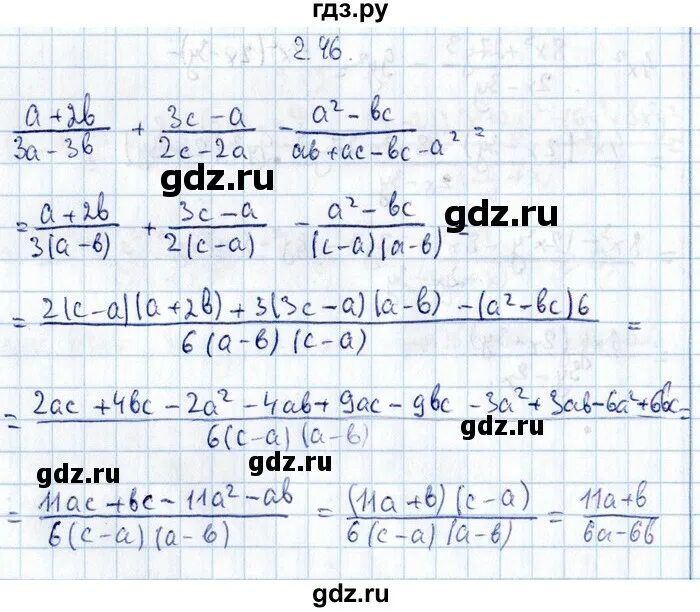 гдз.ру
2.46.
(a + 2b)/(3a - 3b) + (3c - a)/(2c - 2a) - (a² - bc)/(ab + ac - bc - a²) =
gdz.ru
= (a + 2b)/(3(a - b)) + (3c - a)/(2(c - a)) - (a² - bc)/((c - a)(a - b)) =
gdz.ru
= (2(c - a)(a + 2b) + 3(3c - a)(a - b) - (a² - bc)6)/(6(a - b)(c - a)) =
= (2ac + 4bc - 2a² - 4ab + 9ac - 9bc - 3a² + 3ab - 6a² + 6bc)/(6(c - a)(a - b)) =
gdz.ru
gdz.ru
= (11ac + bc - 11a² - ab)/(6(c - a)(a - b)) = ((11a + b)(c - a))/(6(c - a)(a - b)) = (11a + b)/(6a - 6b)